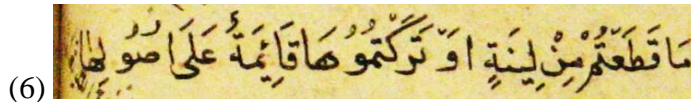 مَا قَطَعْتُمْ مِنْ لِينَةٍ اَوْ تَرَكْتُمُوُهَا قَايِٕمَةً عَلَى اُصُولِهَا
(6)